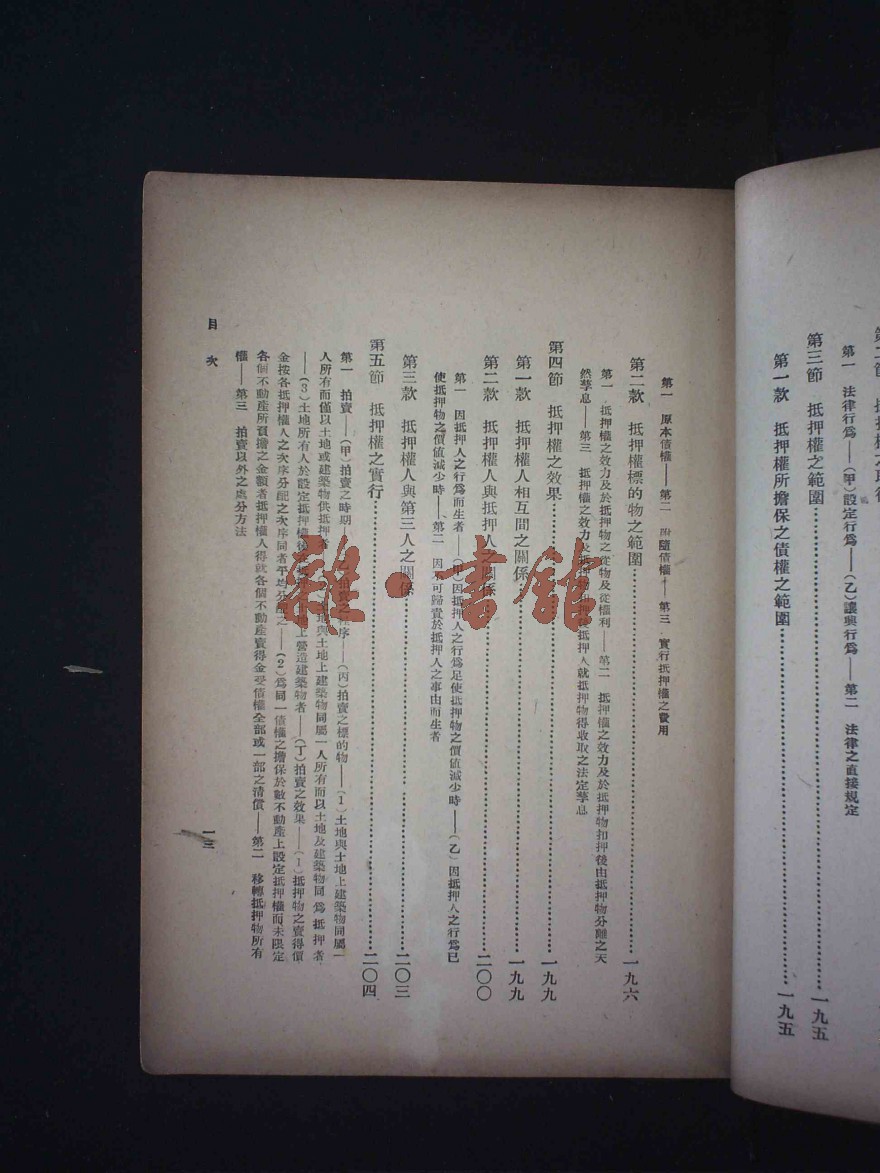 第一　法律行爲——(甲)設定行爲——(乙)讓與行爲——第二　法律之直接規定
第三節　抵押權之範圍……一九五
第一款　抵押權所擔保之債權之範圍……一九五
第一　原本債權——第二　附隨債權——第三　實行抵押權之費用
第二款　抵押權標的物之範圍……一九六
第一　抵押權之效力及於抵押物之從物及從權利——第二　抵押權之效力及於抵押物扣押後由抵押物分離之天
然孳息——第三　抵押權之效力及抵押物扣押後抵押人就抵押物得收取之法定孳息
第四節　抵押權之效果……一九九
第一款　抵押權人相互間之關係……一九九
第二款　抵押權人與抵押人之關係……二〇〇
第一　因抵押人之行爲而生者——(甲)因抵押人之行爲足使抵押物之價值減少時——(乙)因抵押人之行爲已
使抵押物之價値減少時——第二　因不可歸責於抵押人之事由而生者
第三款　抵押權人與第三人之關係……二〇三
第五節　抵押權之實行……二〇四
第一　拍賣——(甲)拍賣之時期——(乙)拍賣之程序——(丙)拍賣之標的物——(1)土地與土地上建築物同屬一
人所有而僅以土地或建築物供抵押者　土地與土地上建築物同屬一人所有而以土地及建築物同爲抵押者
——(3)土地所有人於設定抵押權後在抵押之土地上營造建築物者——(丁)拍賣之效果——(1)抵押物之賣得價
金按各抵押權人之次序分配之次序同者平均分配之——(2)爲同一債權之擔保於數不動產上設定抵押權而未限定
各個不動產所負擔之金額者抵押權人得就各個不動產賣得金受債權全部或一部之清償——第二　移轉抵押物所有
權——第三　拍賣以外之處分方法
目次
一三
雜·書館